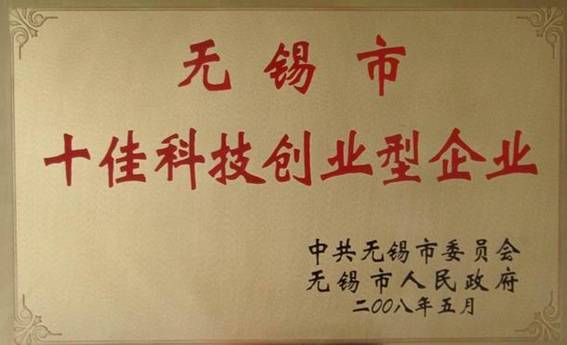 无锡市
十佳科技创业型企业
中共无锡市委员会
无锡市人民政府
二〇〇八年五月